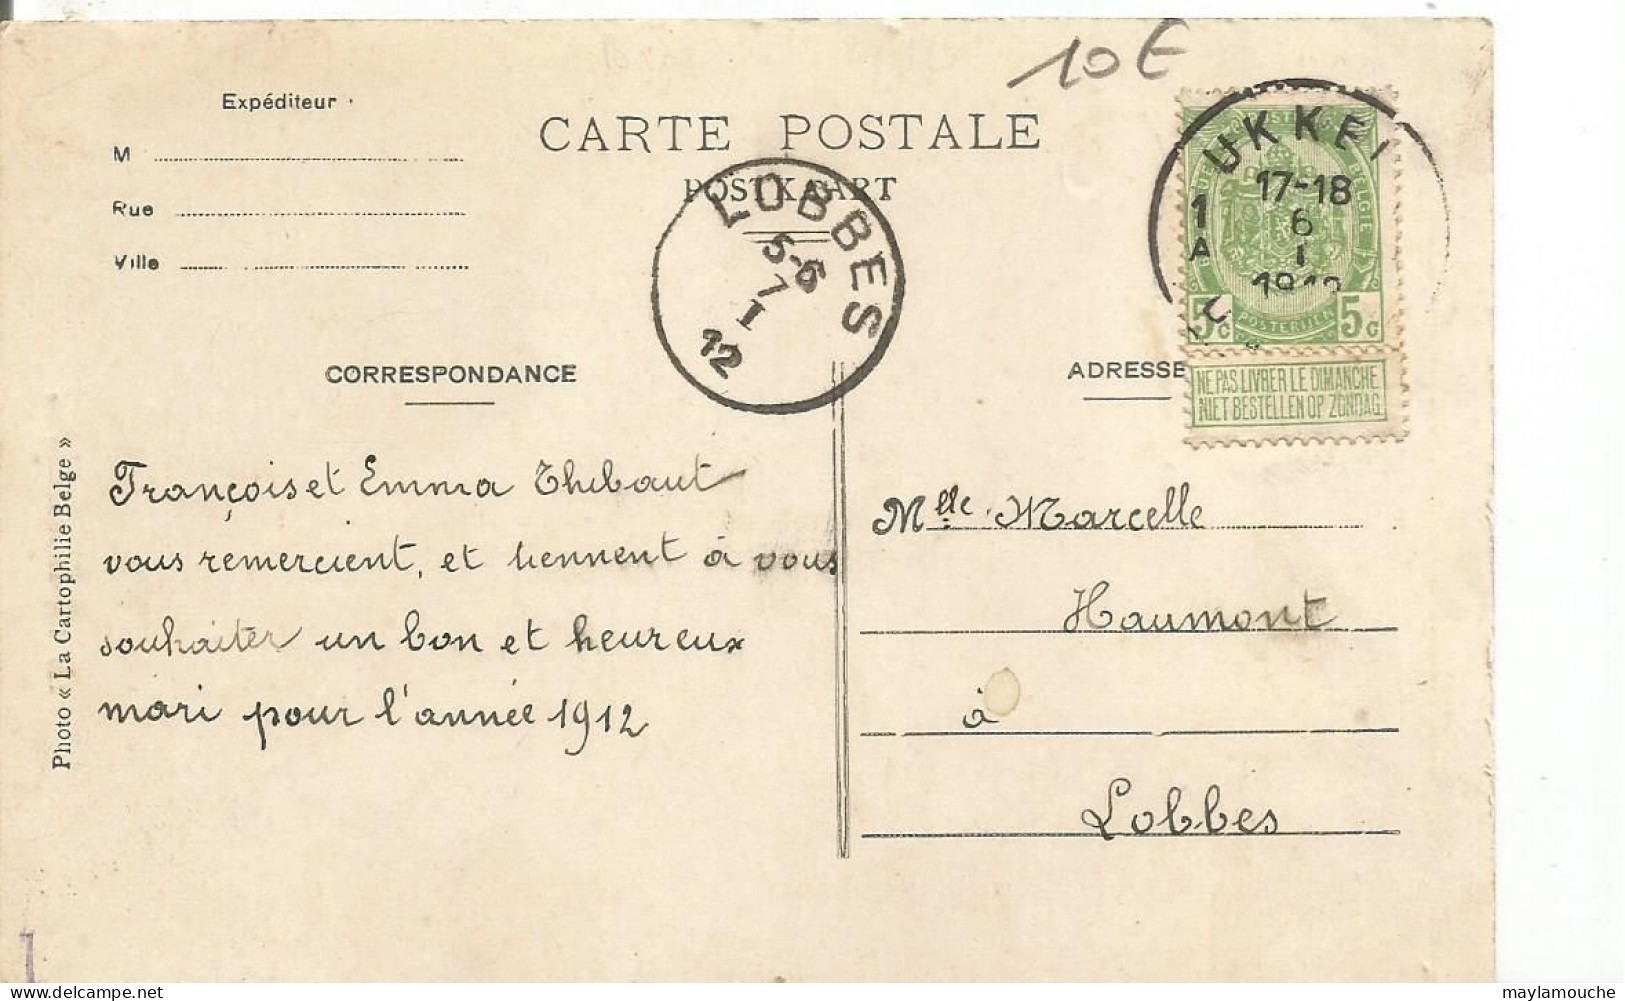 10 €
Expéditeur
M
Rue
Ville
CARTE POSTALE
POSTKAART
LOBBES
5-6
7
I
12
UKKEL
17-18
6
I
1912
1
A
5c 5c
POSTERIJEN
NE PAS LIVRER LE DIMANCHE
NIET BESTELLEN OP ZONDAG
CORRESPONDANCE
François et Emma Thibaut
vous remercient, et tiennent à vous
souhaiter un bon et heureux
mari pour l'année 1912
ADRESSE
Mlle Marcelle
Haumont
à
Lobbes
Photo « La Cartophilie Belge »
delcampe.net
maylamouche